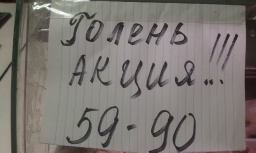 Голень
АКЦИЯ...!!!
59-90